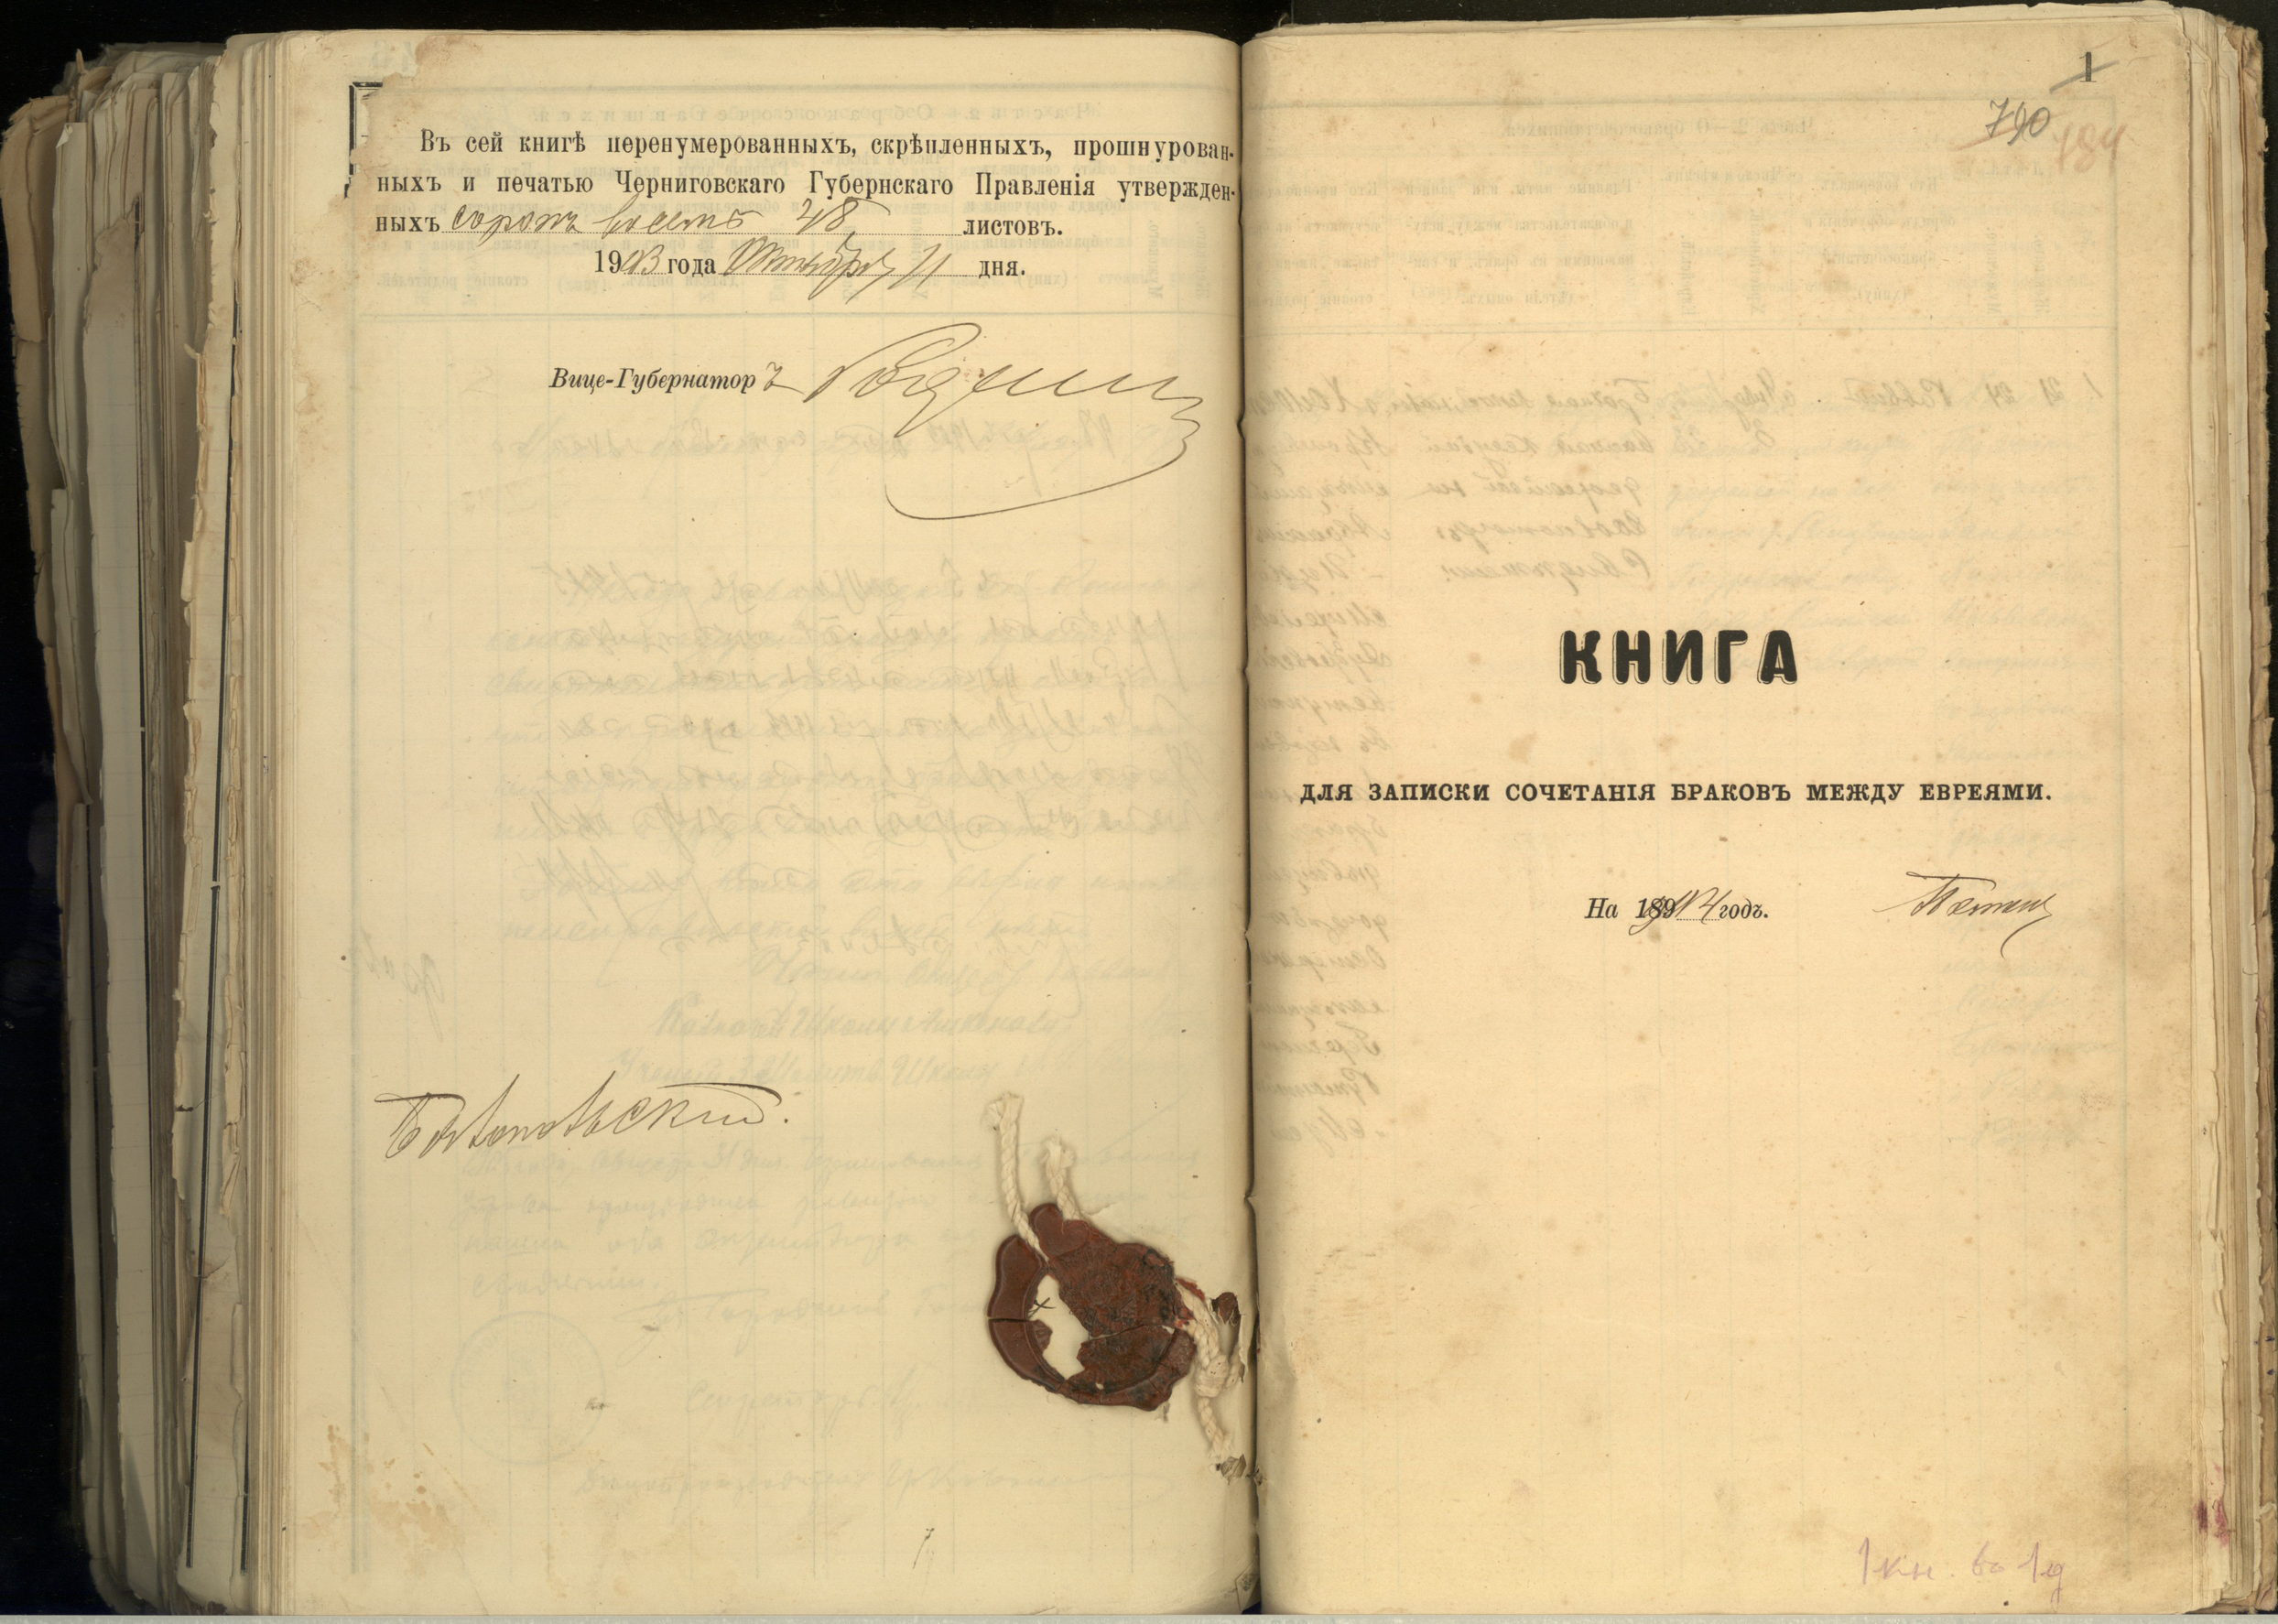 Въ сей книгѣ перенумерованныхъ, скрѣпленныхъ, прошнурован-
ныхъ и печатью Черниговскаго Губернскаго Правленія утвержден-
ныхъ сорокъ восемь 48 листовъ.
1913 года Октября 11 дня.
Вице-Губернаторъ
1
790
184
КНИГА
ДЛЯ ЗАПИСКИ СОЧЕТАНІЯ БРАКОВЪ МЕЖДУ ЕВРЕЯМИ.
На 1914 годъ.
1 кн. во 1 д